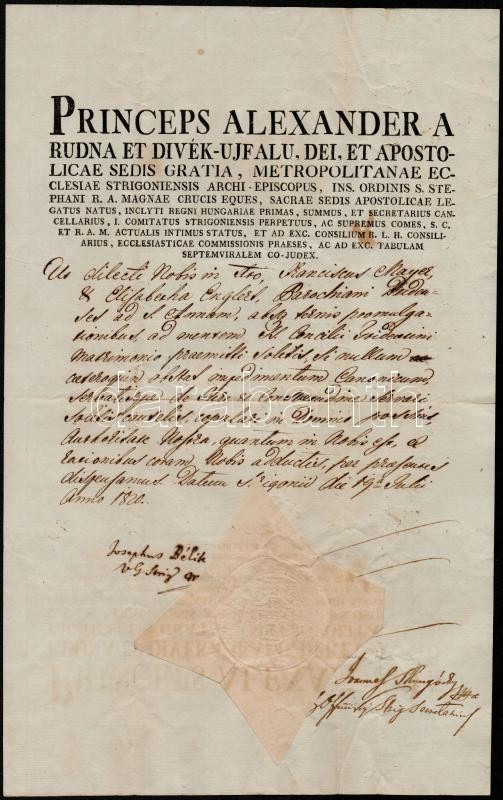 PRINCEPS ALEXANDER A
RUDNA ET DIVÉK-UJFALU, DEI, ET APOSTO-
LICAE SEDIS GRATIA, METROPOLITANAE EC-
CLESIAE STRIGONIENSIS ARCHI-EPISCOPUS, INS. ORDINIS S. STE-
PHANI R. A. MAGNAE CRUCIS EQUES, SACRAE SEDIS APOSTOLICAE LE-
GATUS NATUS, INCLYTI REGNI HUNGARIAE PRIMAS, SUMMUS, ET SECRETARIUS CAN-
CELLARIUS, I. COMITATUS STRIGONIENSIS PERPETUUS, AC SUPREMUS COMES, S. C.
ET R. A. M. ACTUALIS INTIMUS STATUS, ET AD EXC. CONSILIUM R. L. H. CONSILI-
ARIUS, ECCLESIASTICAE COMMISSIONIS PRAESES, AC AD EXC. TABULAM
SEPTEMVIRALEM CO-JUDEX.
Ut dilecti Nobis in Xto, Franciscus Mayer
& Elisabetha Englert, Parochiani Buden-
ses ad S. Annam, absq ternis promulga-
tionibus, ad mentem Concilii Tridentini
matrimonio praemitti solitis, si nullum
caeteroquin obstet impedimentum Canonicum,
servatisque de Jure et Consuetudine
solitis cautelis, copulari in Domino possint,
Authoritate Nostra, quantum in Nobis est, ex
rationibus coram Nobis adductis, per praesentes
dispensamus. Datum Strigonii die 19a Julii
Anno 1820.
Josephus Bélik
V. G. Strig
darabanth